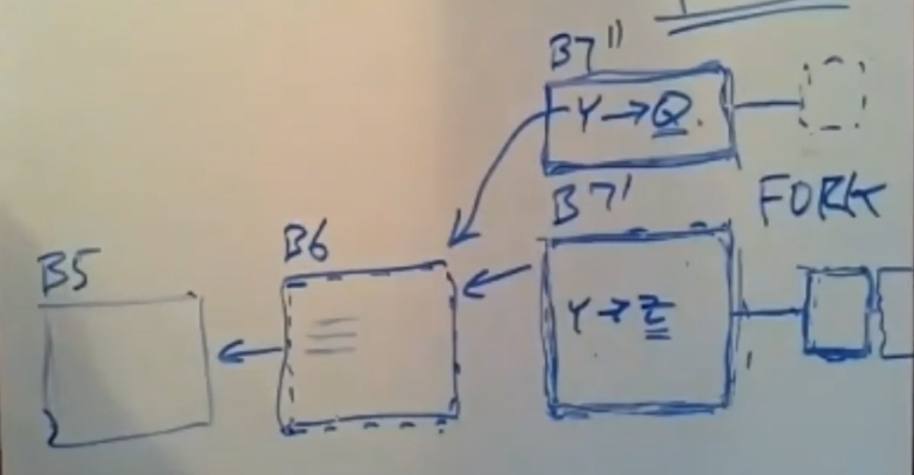 B7''
Y→Q.
B7'
FORK
B6
B5
Y→Z